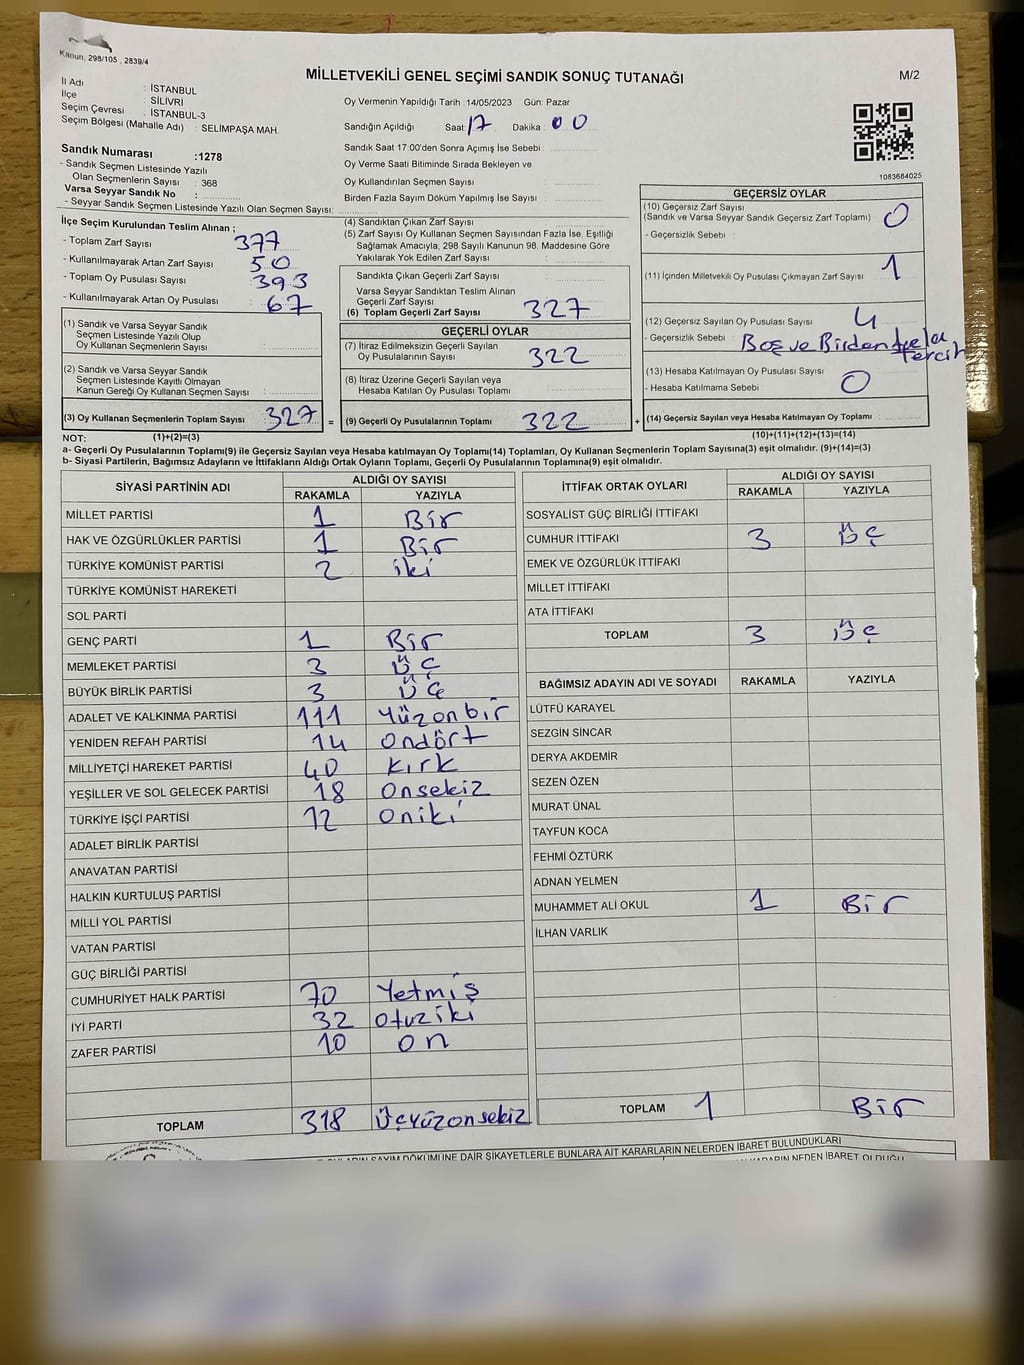 Kanun, 298/105 , 2839/4
MİLLETVEKİLİ GENEL SEÇİMİ SANDIK SONUÇ TUTANAĞI
M/2
İl Adı : İSTANBUL
İlçe : SİLİVRİ
Seçim Çevresi : İSTANBUL-3
Seçim Bölgesi (Mahalle Adı) : SELİMPAŞA MAH.
Oy Vermenin Yapıldığı Tarih :14/05/2023 Gün: Pazar
Sandığın Açıldığı Saat: 17 Dakika : 00
Sandık Saat 17:00'den Sonra Açımış İse Sebebi :
Oy Verme Saati Bitiminde Sırada Bekleyen ve
Oy Kullandırılan Seçmen Sayısı :
Birden Fazla Sayım Döküm Yapılmış İse Sayısı :
1083684025
Sandık Numarası :1278
- Sandık Seçmen Listesinde Yazılı
Olan Seçmenlerin Sayısı : 368
Varsa Seyyar Sandık No :
- Seyyar Sandık Seçmen Listesinde Yazılı Olan Seçmen Sayısı:
İlçe Seçim Kurulundan Teslim Alınan ;
- Toplam Zarf Sayısı : 377
- Kullanılmayarak Artan Zarf Sayısı : 50
- Toplam Oy Pusulası Sayısı : 393
- Kullanılmayarak Artan Oy Pusulası : 67
(1) Sandık ve Varsa Seyyar Sandık
Seçmen Listesinde Yazılı Olup
Oy Kullanan Seçmenlerin Sayısı :
(2) Sandık ve Varsa Seyyar Sandık
Seçmen Listesinde Kayıtlı Olmayan
Kanun Gereği Oy Kullanan Seçmen Sayısı :
(3) Oy Kullanan Seçmenlerin Toplam Sayısı : 327 =
(4) Sandıktan Çıkan Zarf Sayısı :
(5) Zarf Sayısı Oy Kullanan Seçmen Sayısından Fazla İse, Eşitliği
Sağlamak Amacıyla, 298 Sayılı Kanunun 98. Maddesine Göre
Yakılarak Yok Edilen Zarf Sayısı :
Sandıkta Çıkan Geçerli Zarf Sayısı :
Varsa Seyyar Sandıktan Teslim Alınan
Geçerli Zarf Sayısı :
(6) Toplam Geçerli Zarf Sayısı : 327
GEÇERLİ OYLAR
(7) İtiraz Edilmeksizin Geçerli Sayılan
Oy Pusulalarının Sayısı : 322
(8) İtiraz Üzerine Geçerli Sayılan veya
Hesaba Katılan Oy Pusulaları Toplamı :
(9) Geçerli Oy Pusulalarının Toplamı : 322 +
GEÇERSİZ OYLAR
(10) Geçersiz Zarf Sayısı
(Sandık ve Varsa Seyyar Sandık Geçersiz Zarf Toplamı) : 0
- Geçersizlik Sebebi :
(11) İçinden Milletvekili Oy Pusulası Çıkmayan Zarf Sayısı : 1
(12) Geçersiz Sayılan Oy Pusulası Sayısı : 4
- Geçersizlik Sebebi : Boş ve Birden Fazla
tercih
(13) Hesaba Katılmayan Oy Pusulası Sayısı :
- Hesaba Katılmama Sebebi : 0
(14) Geçersiz Sayılan veya Hesaba Katılmayan Oy Toplamı :
NOT: (1)+(2)=(3) (10)+(11)+(12)+(13)=(14)
a- Geçerli Oy Pusulalarının Toplamı(9) ile Geçersiz Sayılan veya Hesaba katılmayan Oy Toplamı(14) Toplamları, Oy Kullanan Seçmenlerin Toplam Sayısına(3) eşit olmalıdır. (9)+(14)=(3)
b- Siyasi Partilerin, Bağımsız Adayların ve İttifakların Aldığı Ortak Oyların Toplamı, Geçerli Oy Pusulalarının Toplamına(9) eşit olmalıdır.
SİYASİ PARTİNİN ADI ALDIĞI OY SAYISI
RAKAMLA YAZIYLA
MİLLET PARTİSİ 1 Bir
HAK VE ÖZGÜRLÜKLER PARTİSİ 1 Bir
TÜRKİYE KOMÜNİST PARTİSİ 2 iki
TÜRKİYE KOMÜNİST HAREKETİ
SOL PARTİ
GENÇ PARTİ 1 Bir
MEMLEKET PARTİSİ 3 Üç
BÜYÜK BİRLİK PARTİSİ 3 Üç
ADALET VE KALKINMA PARTİSİ 111 Yüzonbir
YENİDEN REFAH PARTİSİ 14 Ondört
MİLLİYETÇİ HAREKET PARTİSİ 40 Kırk
YEŞİLLER VE SOL GELECEK PARTİSİ 18 Onsekiz
TÜRKİYE İŞÇİ PARTİSİ 12 Oniki
ADALET BİRLİK PARTİSİ
ANAVATAN PARTİSİ
HALKIN KURTULUŞ PARTİSİ
MİLLİ YOL PARTİSİ
VATAN PARTİSİ
GÜÇ BİRLİĞİ PARTİSİ
CUMHURİYET HALK PARTİSİ 70 Yetmiş
İYİ PARTİ 32 Otuziki
ZAFER PARTİSİ 10 on
TOPLAM 318 Üçyüzonsekiz
İTTİFAK ORTAK OYLARI ALDIĞI OY SAYISI
RAKAMLA YAZIYLA
SOSYALİST GÜÇ BİRLİĞİ İTTİFAKI
CUMHUR İTTİFAKI 3 Üç
EMEK VE ÖZGÜRLÜK İTTİFAKI
MİLLET İTTİFAKI
ATA İTTİFAKI
TOPLAM 3 Üç
BAĞIMSIZ ADAYIN ADI VE SOYADI RAKAMLA YAZIYLA
LÜTFÜ KARAYEL
SEZGİN SİNCAR
DERYA AKDEMİR
SEZEN ÖZEN
MURAT ÜNAL
TAYFUN KOCA
FEHMİ ÖZTÜRK
ADNAN YELMEN
MUHAMMET ALİ OKUL 1 Bir
İLHAN VARLIK
TOPLAM 1 Bir
SAYIM DÖKÜMÜNE DAİR ŞİKAYETLERLE BUNLARA AİT KARARLARIN NELERDEN İBARET BULUNDUKLARI